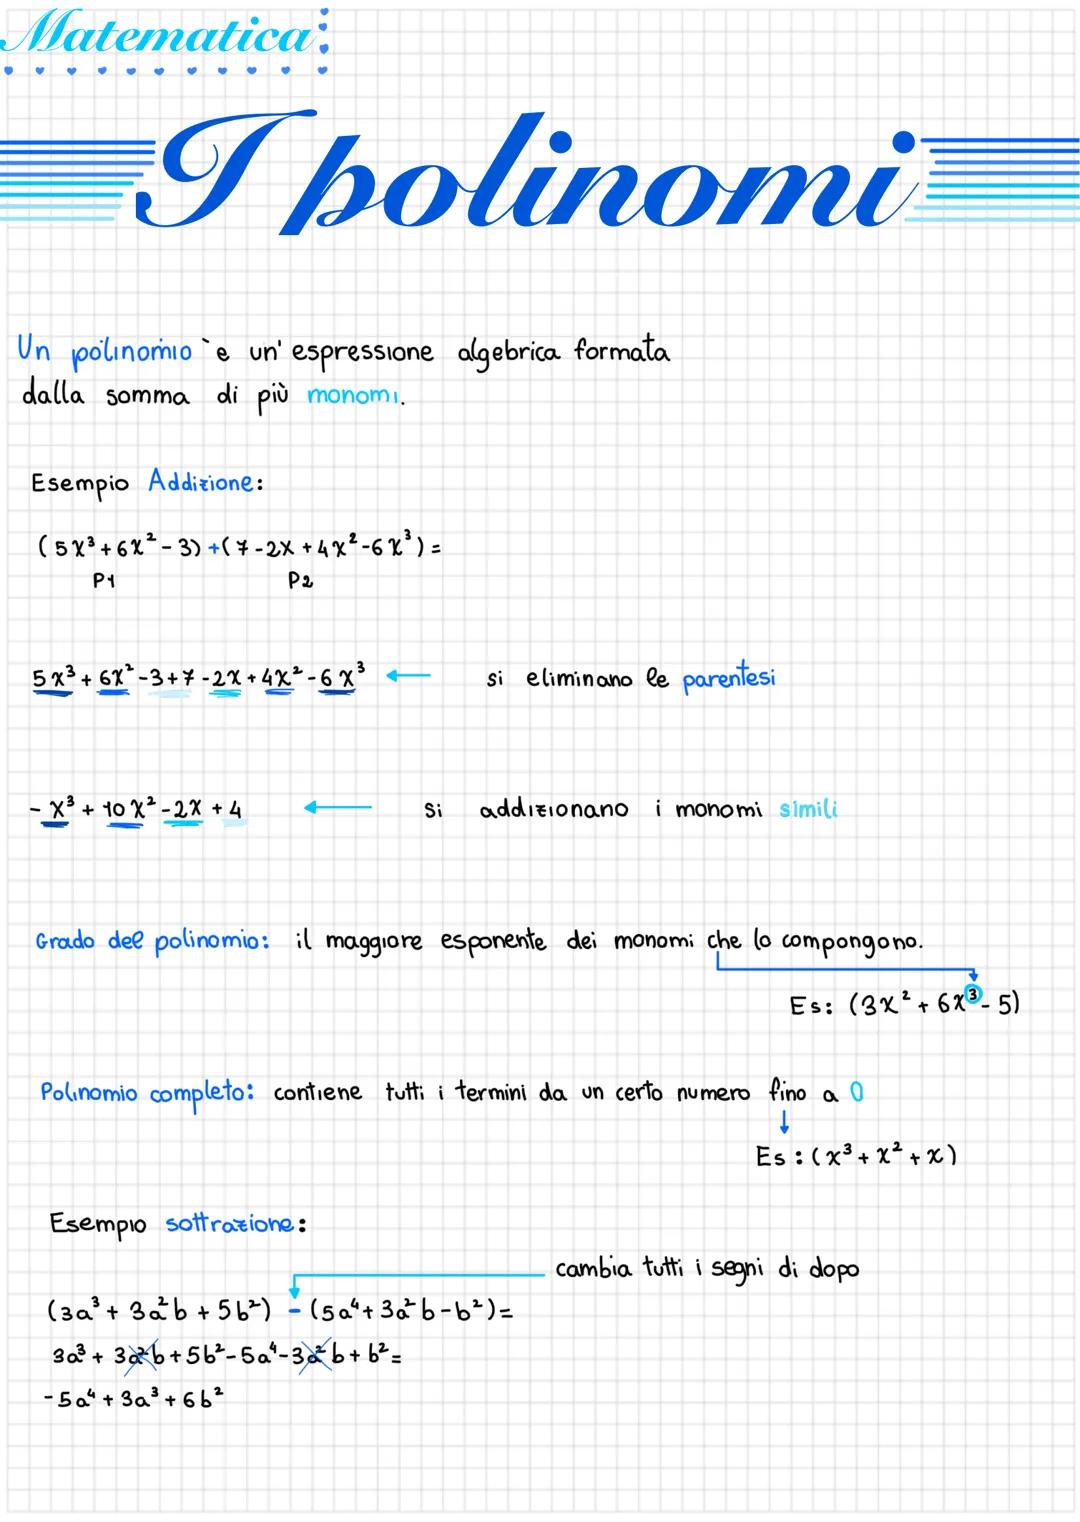 Matematica:
I polinomi
Un polinomio è un' espressione algebrica formata
dalla somma di più monomi.
Esempio Addizione:
(5x³+6x²-3)+(7-2x+4x²-6x³)=
P1 P2
5x³+6x²-3+7-2x+4x²-6x³ ← si eliminano le parentesi
-x³+10x²-2x+4 ← si addizionano i monomi simili
Grado del polinomio: il maggiore esponente dei monomi che lo compongono.
Es: (3x²+6x³-5)
Polinomio completo: contiene tutti i termini da un certo numero fino a 0
↓
Es: (x³+x²+x)
Esempio sottrazione:
cambia tutti i segni di dopo
(3a³+3a²b+5b²)-(5a⁴+3a²b-b²)=
3a³+3a²b+5b²-5a⁴-3a²b+b²=
-5a⁴+3a³+6b²